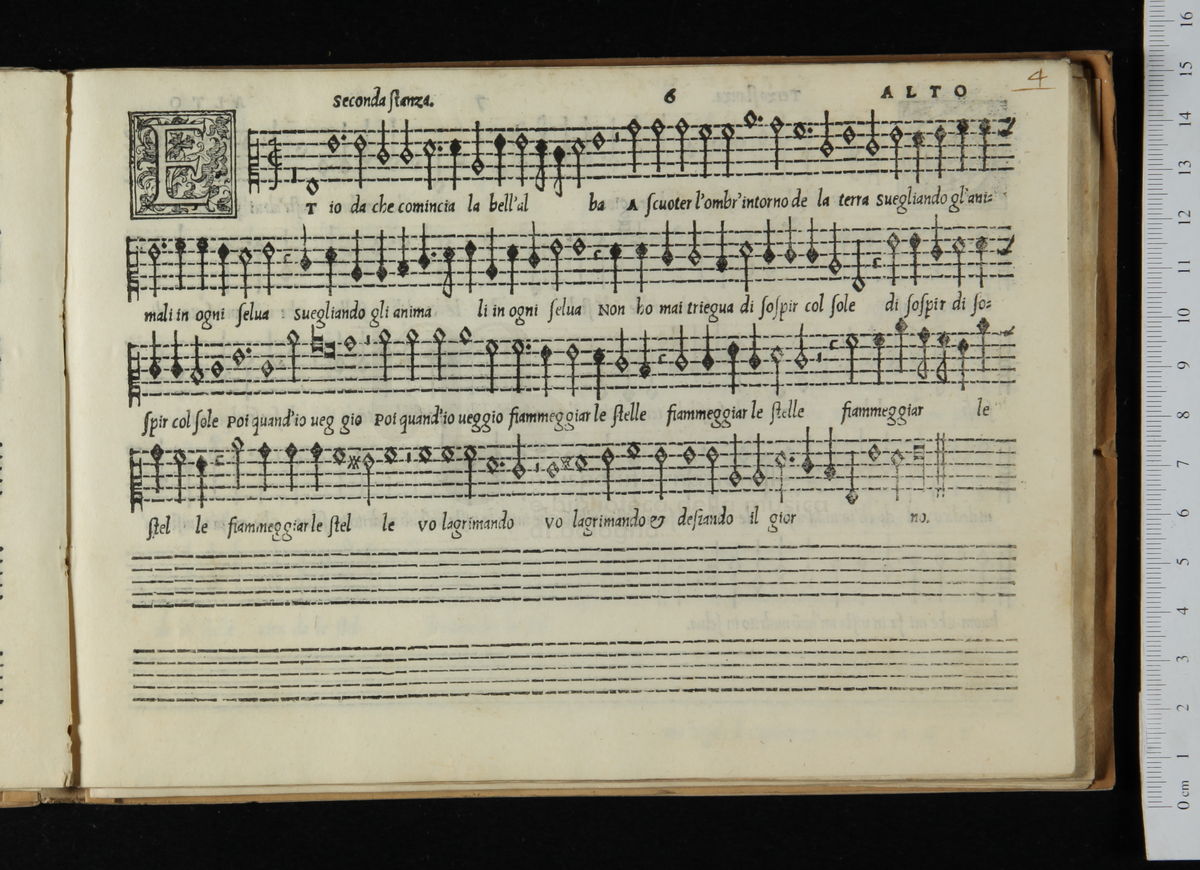 4
Seconda ſtanza. 6 ALTO
ET io da che comincia la bell'al ba A ſcuoter l'ombr'intorno de la terra Suegliando gl'ani=
mali in ogni ſelua Suegliando gli anima li in ogni ſelua Non ho mai triegua di ſoſpir col ſole di ſoſpir di ſo=
ſpir col ſole Poi quand'io ueg gio Poi quand'io ueggio fiammeggiar le ſtelle fiammeggiar le ſtelle fiammeggiar le
ſtel le fiammeggiar le ſtel le vo lagrimando vo lagrimando & deſiando il gior no.
0 cm 1 2 3 4 5 6 7 8 9 10 11 12 13 14 15 16